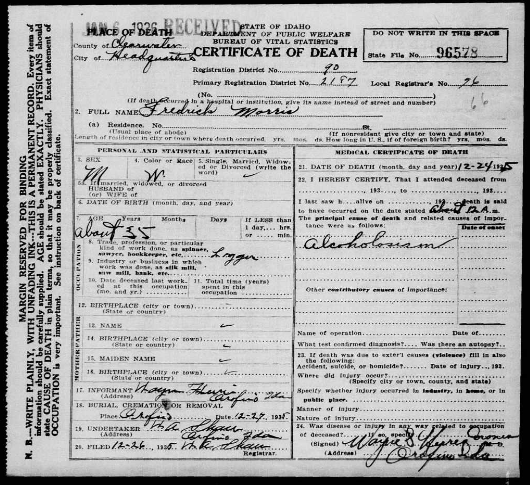 JAN 6 1936 RECEIVED
STATE OF IDAHO
DEPARTMENT OF PUBLIC WELFARE
BUREAU OF VITAL STATISTICS
CERTIFICATE OF DEATH
DO NOT WRITE IN THIS SPACE
State File No. 96578
PLACE OF DEATH
County of Clearwater
City of Headquarters
Registration District No. 90
Primary Registration District No. 2187 Local Registrar's No. 76
66
(No. St.
(If death occurred in a hospital or institution, give its name instead of street and number)
2. FULL NAME Fredrick Morris
(a) Residence: No. St.
(Usual place of abode) (If nonresident give city or town and State)
Length of residence in city or town where death occurred yrs. mos. ds. How long in U. S., if of foreign birth? yrs. mos. ds.
PERSONAL AND STATISTICAL PARTICULARS
3. SEX M
4. Color or Race W.
5. Single, Married, Widowed, or Divorced (write the word)
5a. If married, widowed, or divorced
HUSBAND of
(or) WIFE of
6. DATE OF BIRTH (month, day, and year)
7. AGE Years Months Days If LESS than 1 day, hrs. or min.
about 35
OCCUPATION
8. Trade, profession, or particular kind of work done, as spinner, sawyer, bookkeeper, etc. Logger
9. Industry or business in which work was done, as silk mill, saw mill, bank, etc.
10. Date deceased last worked at this occupation (mo. and yr.)
11. Total time (years) spent in this occupation
12. BIRTHPLACE (city or town)
(State or country)
13. NAME
14. BIRTHPLACE (city or town)
(State or country)
15. MAIDEN NAME
16. BIRTHPLACE (city or town)
(State or country)
17. INFORMANT
(Address) Orofino Ida
18. BURIAL, CREMATION OR REMOVAL
Place Orofino Date 12-27, 1935
19. UNDERTAKER
(Address) Orofino Ida
20. FILED 12-26, 1935
Registrar.
MEDICAL CERTIFICATE OF DEATH
21. DATE OF DEATH (month, day and year) 12-24 1935
22. I HEREBY CERTIFY, That I attended deceased
from 192 to 192
I last saw h alive on 192 death is said
to have occurred on the date stated about 12 A.m.
The principal cause of death and related causes of importance were as follows:
Date of onset
Alcoholosism
Other contributory causes of importance:
Name of operation Date of
What test confirmed diagnosis? Was there an autopsy?
23. If death was due to external causes (violence) fill in also the following:
Accident, suicide, or homicide? Date of injury 192
Where did injury occur?
(Specify city or town, county, and state)
Specify whether injury occurred in industry, in home, or in public place.
Manner of injury
Nature of injury
24. Was disease or injury in any way related to occupation of deceased? If so, specify
(Signed) Coroner
(Address) Orofino Ida
MARGIN RESERVED FOR BINDING
N. B.—WRITE PLAINLY, WITH UNFADING INK—THIS IS A PERMANENT RECORD. Every item of
information should be carefully supplied. AGE should be stated EXACTLY. PHYSICIANS should
state CAUSE OF DEATH in plain terms, so that it may be properly classified. Exact statement of
OCCUPATION is very important. See instruction on back of certificate.